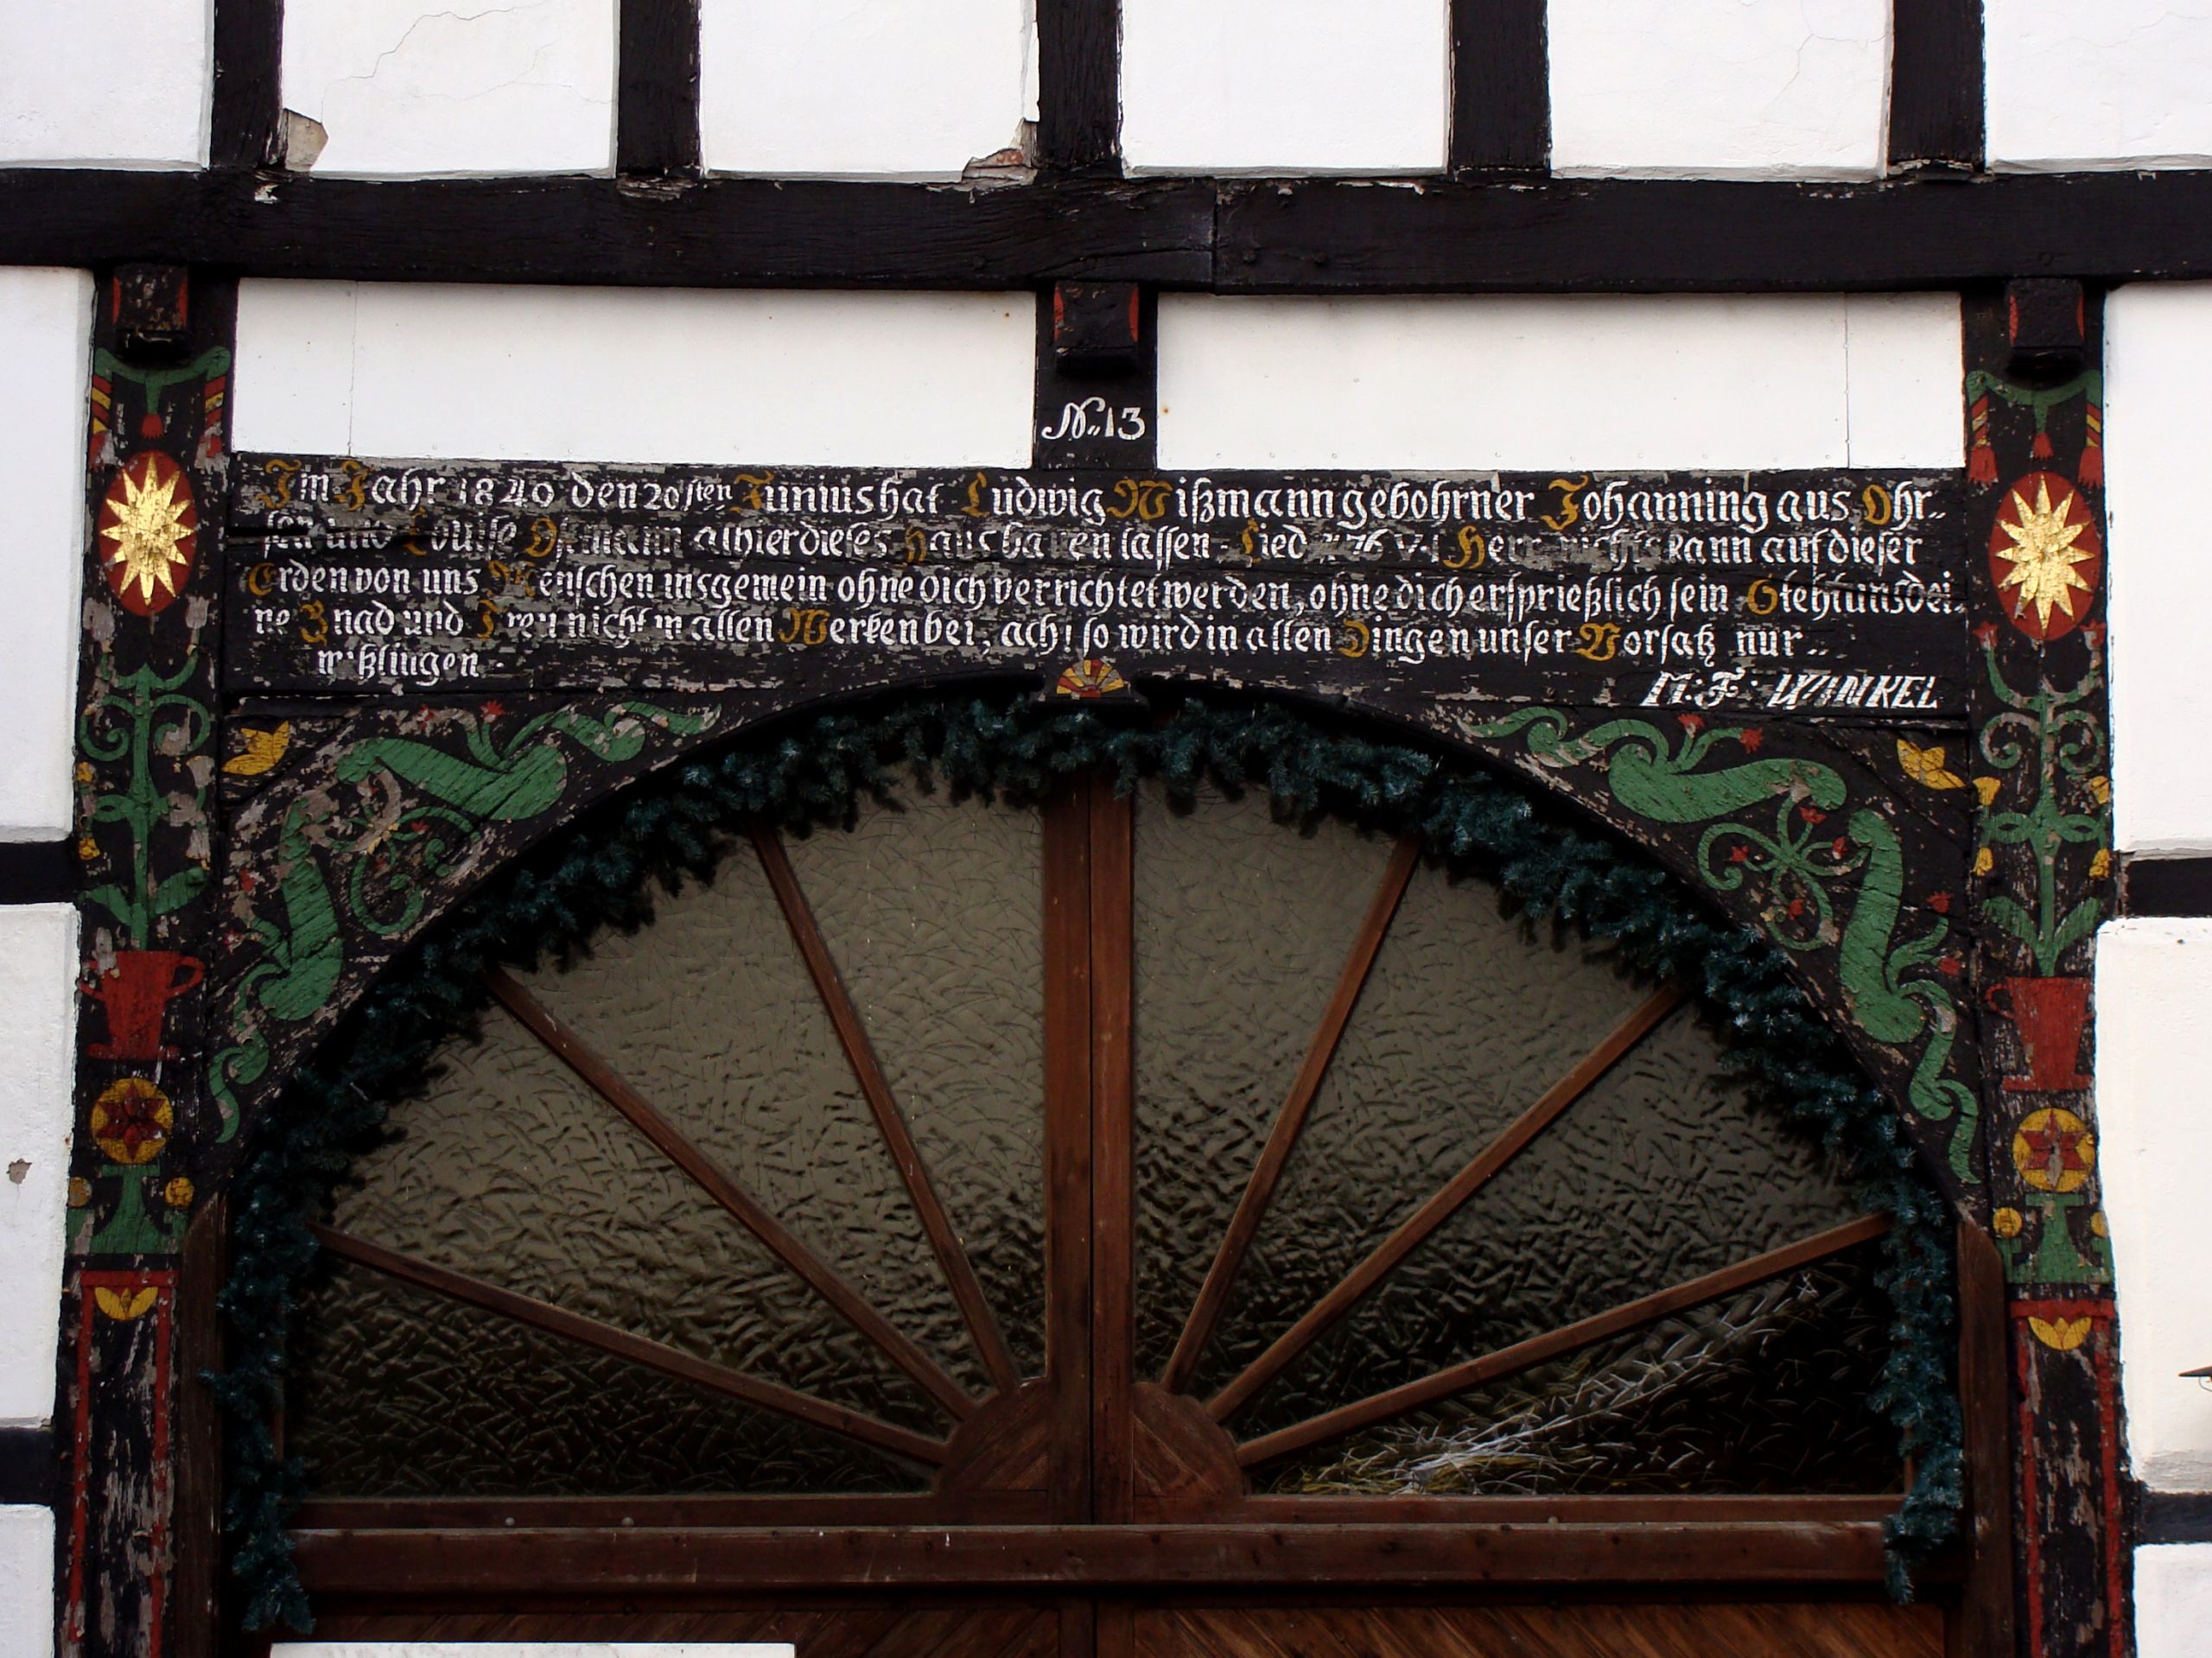 N. 13
Im Jahr 1840 den 20sten Junius hat Ludwig Wißmann gebohrner Johanning aus Ohr..
sen und Louise alhier dieses Haus bauen lassen. Lied Herr nichts kann auf dieser
Erden von uns Menschen insgemein ohne dich verrichtet werden, ohne dich ersprießlich sein Steht uns dei,
ne Gnad und Treu nicht in allen Werken bei, ach! so wird in allen Dingen unser Vorsatz nur..
mißlingen.
M: F: WINKEL